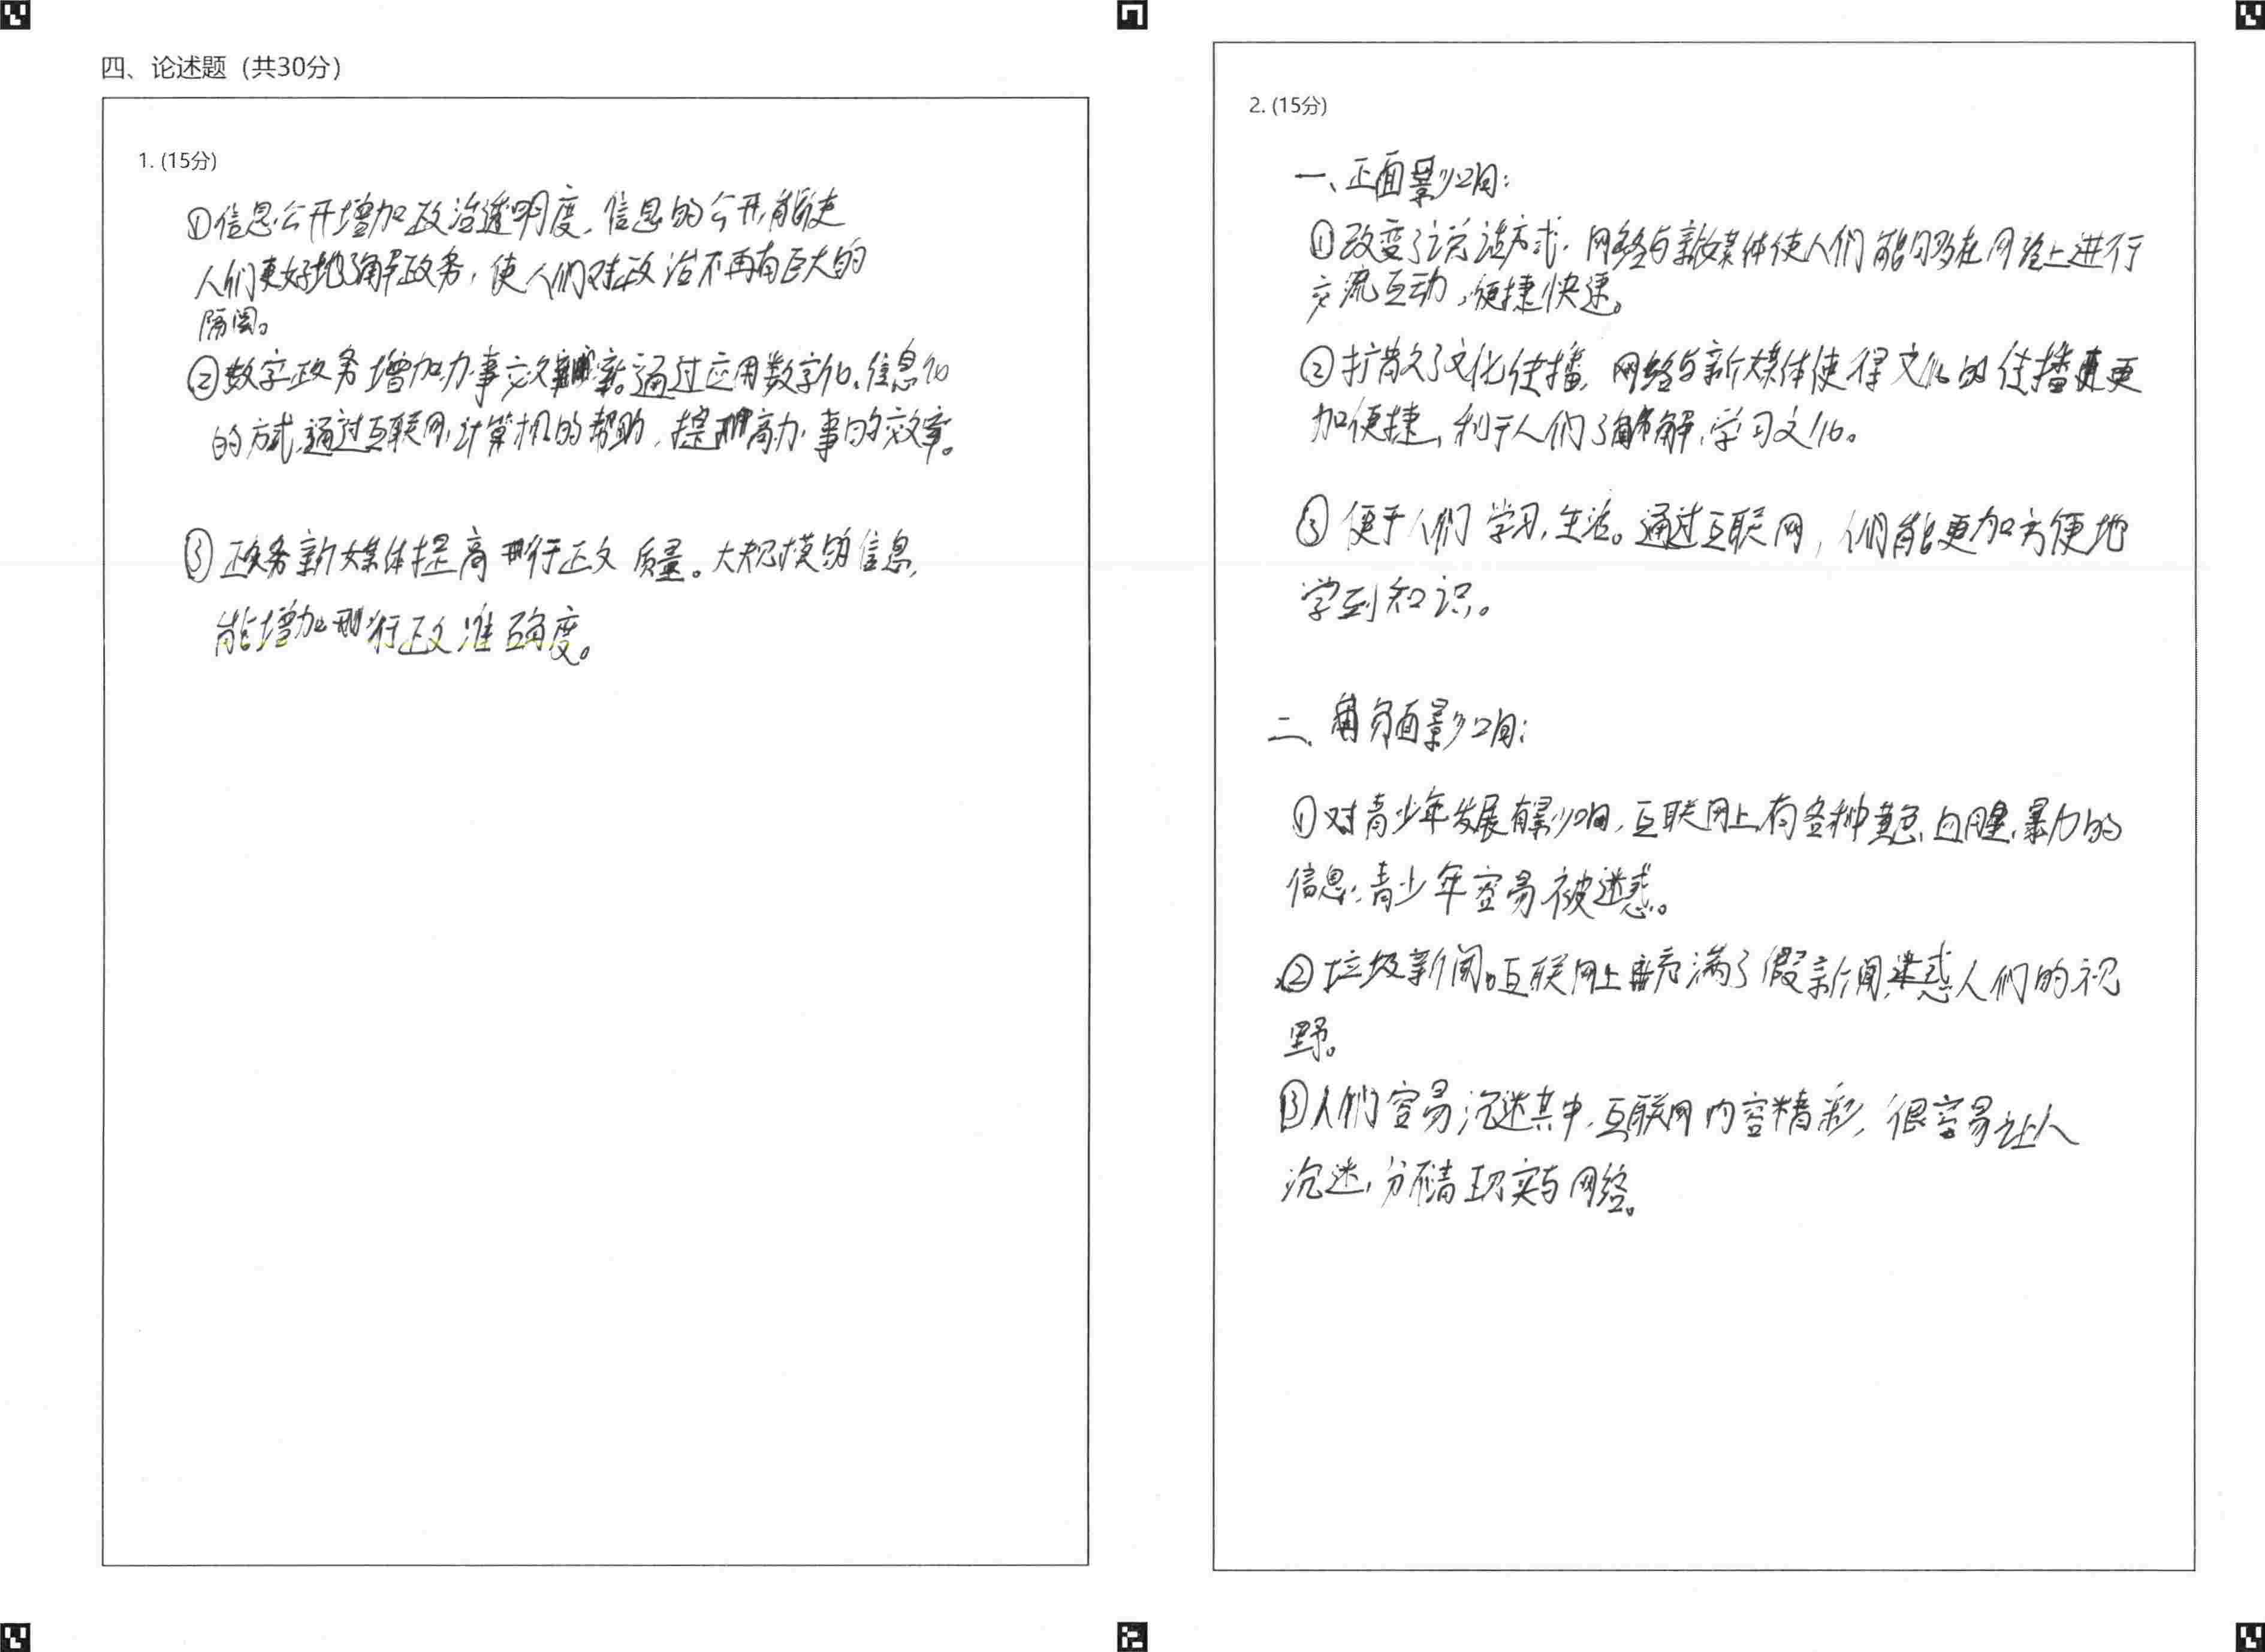 四、论述题（共30分）
1. (15分)
①信息公开增加政治透明度，信息的公开，能使
人们更好地了解政务，使人们对政治不再有巨大的
隔阂。
②数字政务增加办事效率。通过应用数字化、信息化
的方式，通过互联网，计算机的帮助，提高办事的效率。
③政务新媒体提高行政质量。大规模的信息，
能增加行政准确度。
2. (15分)
一、正面影响：
①改变了谈话方式，网络与新媒体使人们能够在网络上进行
交流互动，便捷快速。
②扩散了文化传播，网络与新媒体使得文化的传播更
加便捷，利于人们了解，学习文化。
③便于人们学习，生活。通过互联网，人们能更加方便地
学到知识。
二、负面影响：
①对青少年发展有影响，互联网上有各种黄色、血腥、暴力的
信息，青少年容易被迷惑。
②垃圾新闻。互联网上充满了假新闻，迷惑人们的视
野。
③人们容易沉迷其中，互联网内容精彩，很容易让人
沉迷，分不清现实与网络。